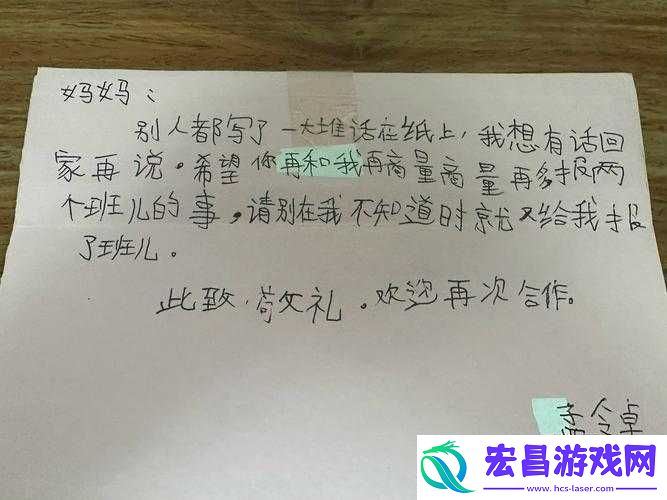 妈妈：
别人都写了一大堆话在纸上，我想有话回
家再说。希望你再和我再商量商量再多报两
个班儿的事，请别在我不知道时就又给我报
了班儿。
此致，敬礼。欢迎再次合作。
孟令卓
宏昌游戏网
www.hcs-laser.com